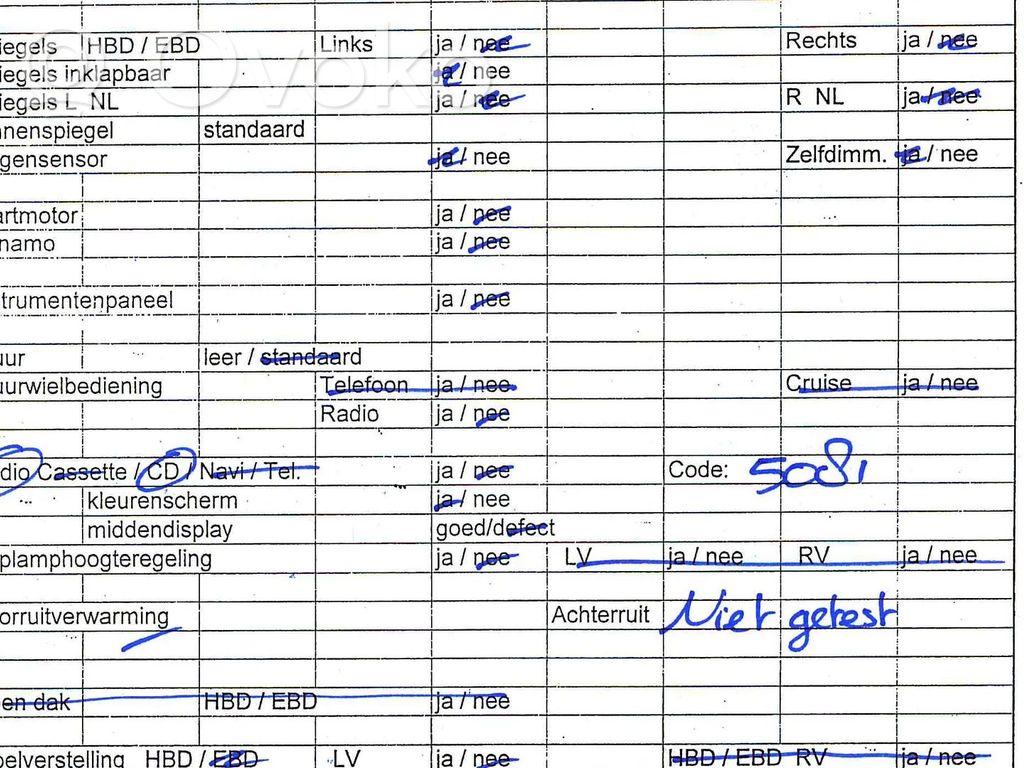 iegels HBD / EBD Links ja / nee Rechts ja / nee
iegels inklapbaar ja / nee
iegels L NL ja / nee R NL ja / nee
nnenspiegel standaard
gensensor ja / nee Zelfdimm. ja / nee
artmotor ja / nee
namo ja / nee
trumentenpaneel ja / nee
uur leer / standaard
uurwielbediening Telefoon ja / nee Cruise ja / nee
Radio ja / nee
dio Cassette / CD / Navi / Tel. ja / nee Code: 5081
kleurenscherm ja / nee
middendisplay goed/defect
plamphoogteregeling ja / nee LV ja / nee RV ja / nee
orruitverwarming Achterruit Niet getest
en dak HBD / EBD ja / nee
elverstelling HBD / EBD LV ja / nee HBD / EBD RV ja / nee
© Ovoko